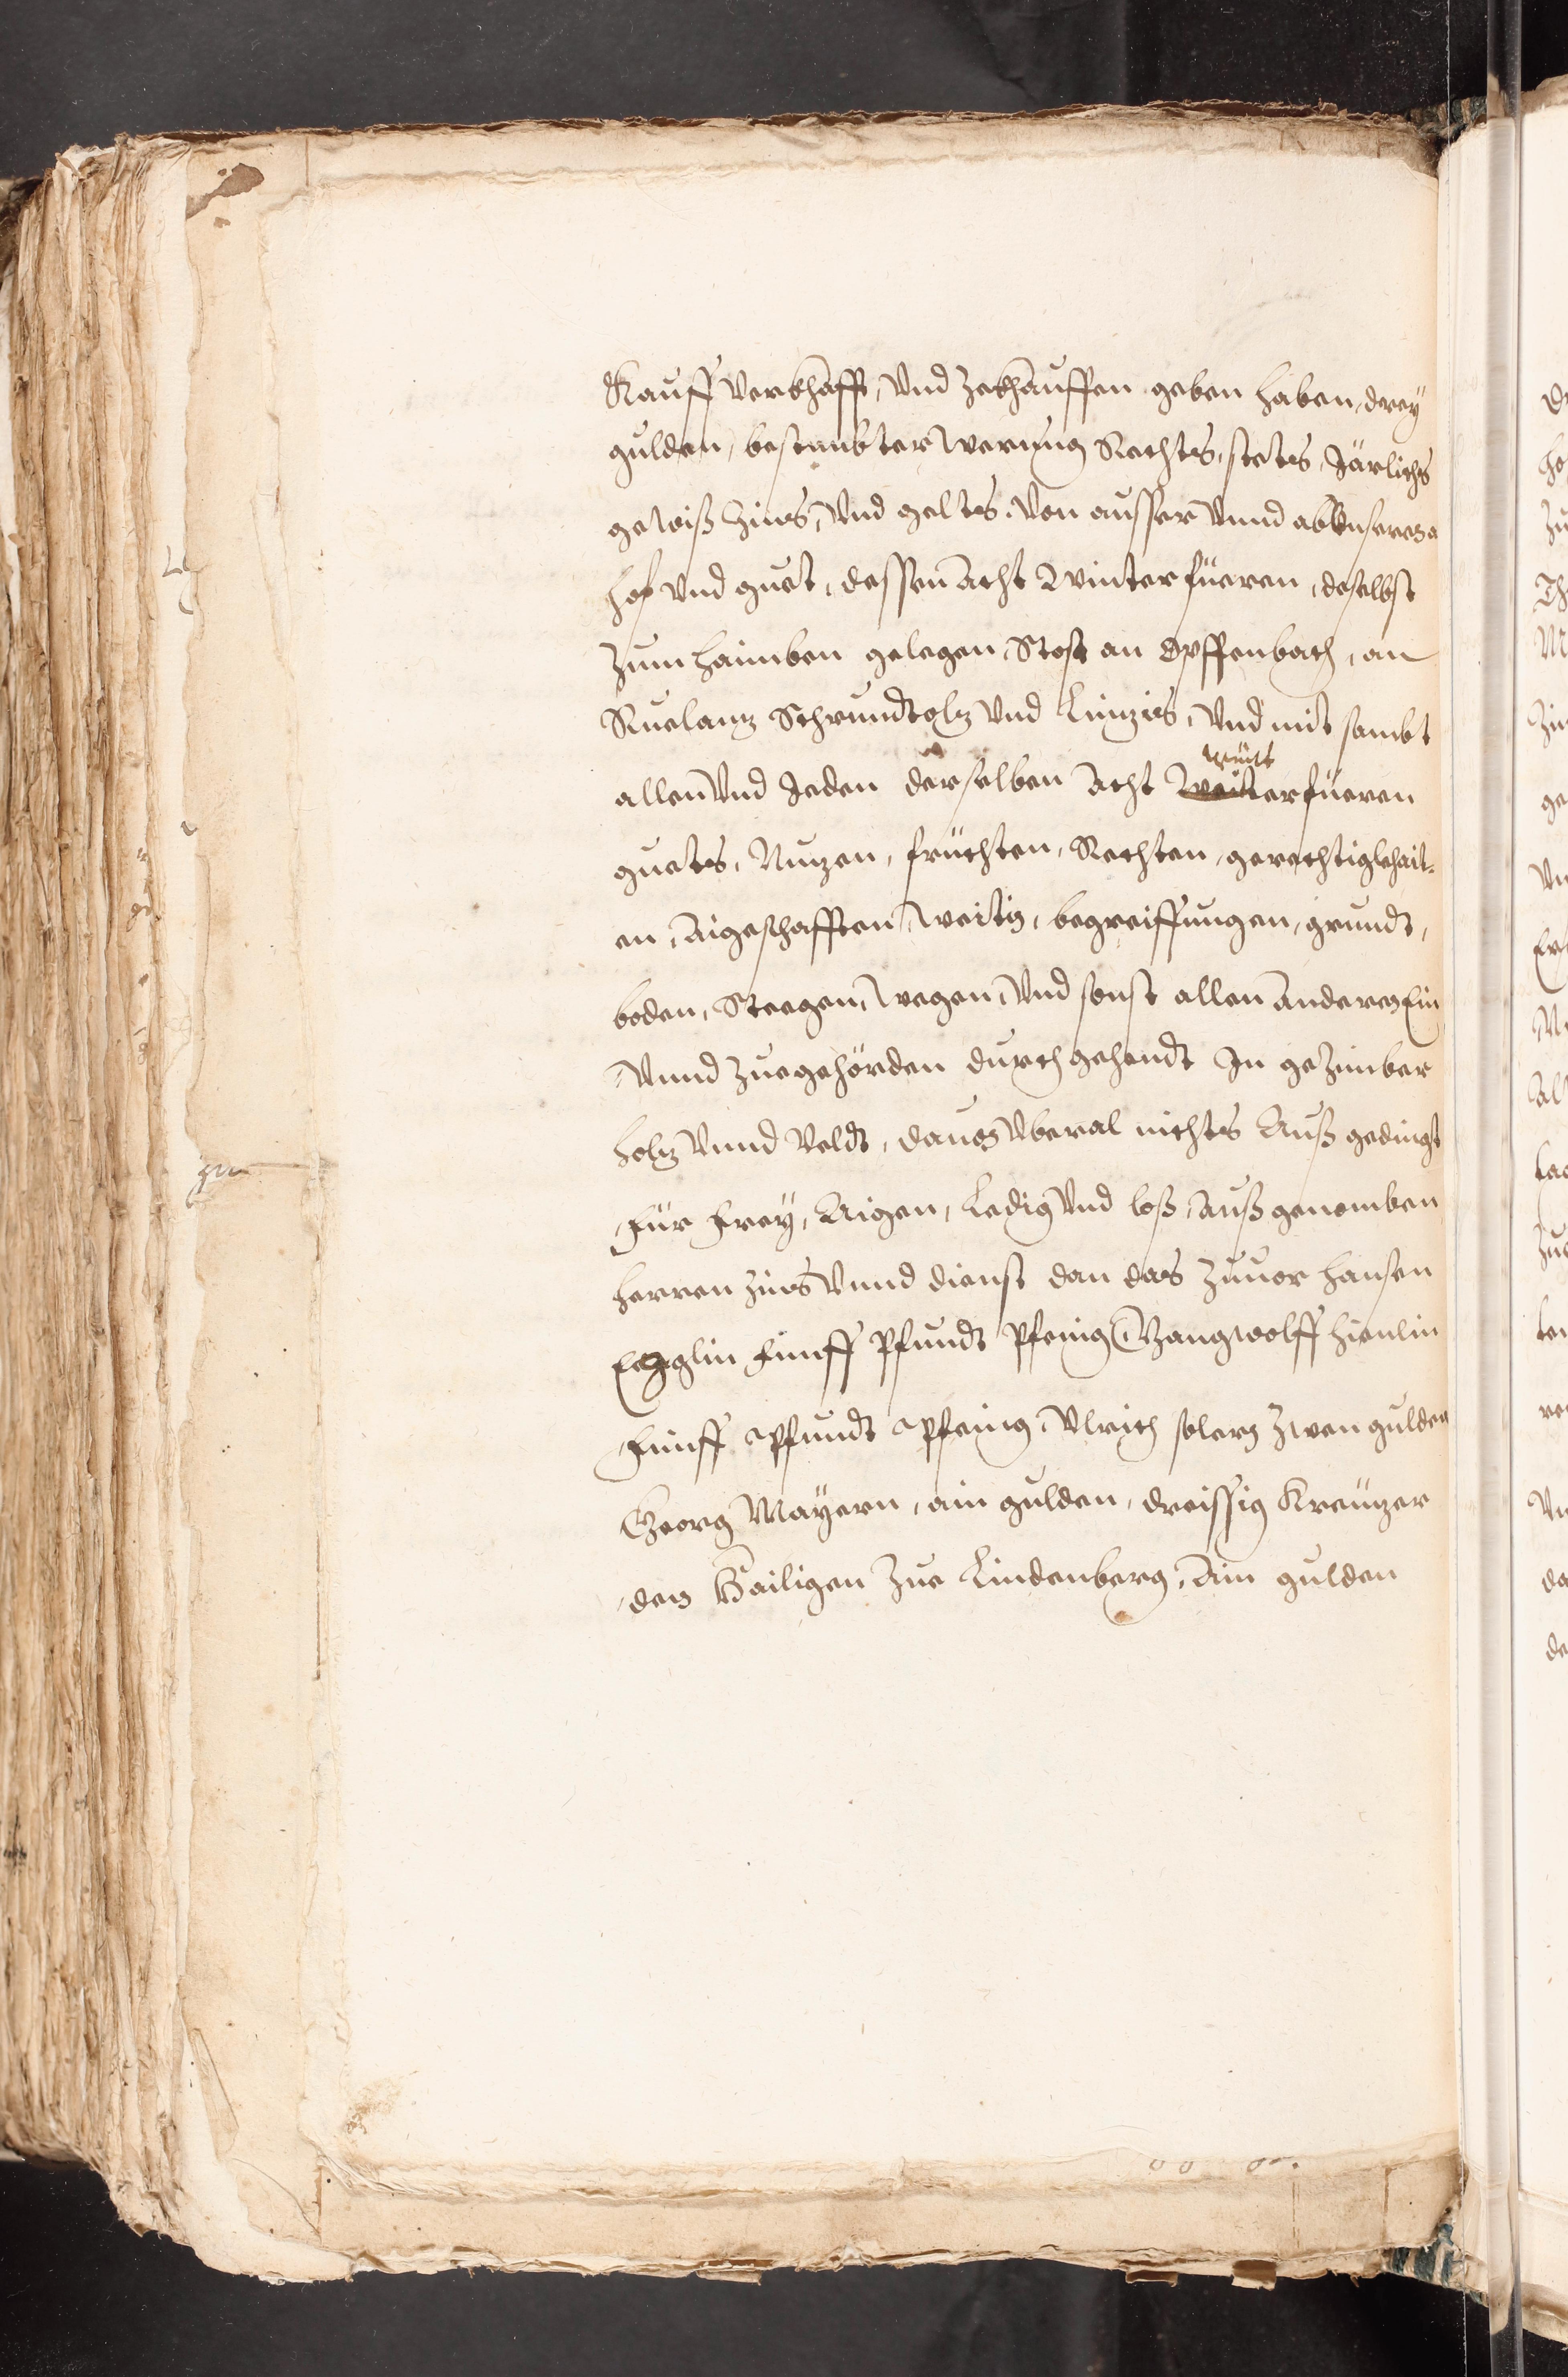 Kauff Verkhaufft, Vnd Zekhauffen geben haben, drey
gulden, bestimbter Werung Rechts, stets, Järlichs
gewiß Zins, Vnd geltes. Von ausser Vnnd ab Vnserem
hof Vnd guet, dessen Acht Winterfüeren, deselbst
Zum haimben gelegen, Stost an Opffenbach, an
Ruelanz Schrundtolz Vnd Linzis, Vnd mit sambt
allen Vnd Jeden derselben Acht Winterfüeren
guets, Nuzen, früchten, Rechten, gerechtigkhait-
en, Aigeschafften, weitin, begreiffungen, grundt,
boden, Steegen, Wegen, Vnd sonst allen Anderen Ein
Vnnd Zuegehörden durchgehendt In gezimber
holz Vnnd Veldt, dauon Vberal nichts Auß gedingt
Für Frey, Aigen, Ledig Vnd loß, Außgenomben
herren Zins Vnnd dienst dan das Zuuor hansen
Fünff Pfundt Pfenig, Gangwolff hienlin
Fünff Pfundt Pfening, Vlrich Zwen gulden
Georg Mayern, ain gulden, dreissig Kreuzer
den Hailigen Zue Lindenberg, Ain gulden